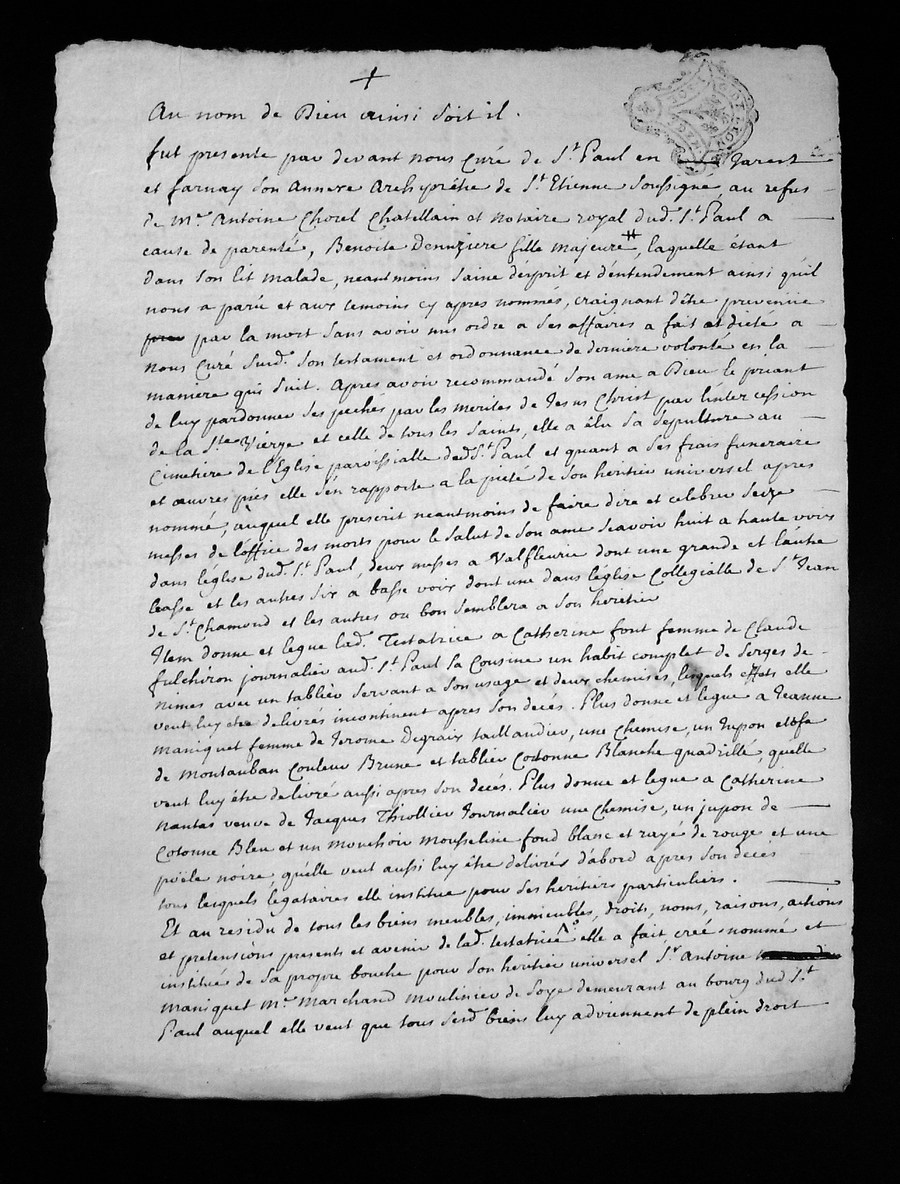 Au nom de Dieu ainsi soit il .
fut presente par devant nous Curé de St. Paul en Jarest
et farnay son annexe archiprêtré de St. Etienne soussigné, au refus
de Mre. Antoine Chorel Chatellain et notaire royal dud. St. Paul a
cause de parenté, Benoite Denuziere fille majeure #, laquelle étant
dans son lit malade, neantmoins saine d'esprit et d'entendement ainsi qu'il
nous a paru et aux temoins cy apres nommés, craignant d'être prevenüe
par la mort sans avoir mis ordre a ses affaires a fait et dicté a
nous Curé susd. son testament et ordonnance de derniere volonté en la
maniere qui suit. Apres avoir recommandé son ame a Dieu le priant
de luy pardonner ses pechés par les merites de Jesus Christ par l'intercession
de la Ste. Vierge et celle de tous les saints, elle a élu sa sepulture au
cimetiere de l'Eglise paroissialle dud. St. Paul et quant a ses frais funeraire
et œuvres pies elle s'en rapporte a la pieté de son heritier universel apres
nommé, auquel elle prescrit neantmoins de faire dire et celebrer seize
messes de l'office des morts pour le salut de son ame scavoir huit a haute voix
dans l'église dud. St. Paul, deux messes a Valfleurie dont une grande et l'autre
basse et les autres six a basse voix dont une dans l'église Collegialle de St. Jean
de St. Chamond et les autres ou bon semblera a son heritier
Item donne et legue lad. Testatrice a Catherine font femme de Claude
fulchiron journalier aud. St. Paul sa cousine un habit complet de serges de
nimes avec un tablier servant a son usage et deux chemises, lesquels effets elle
veut luy être delivrés incontinent apres son deces. Plus donne et legue a Jeanne
maniquet femme de Jerome Degraix taillandier, une chemise, un Jupon etofe
de montauban couleur Brune et tablier cotonne Blanche quadrillé, qu'elle
veut luy être delivré aussi apres son decés. Plus donne et legue a Catherine
nantas veuve de Jacques Thiollier Journalier une chemise, un jupon de
cotonne Bleu et un mouchoir mousseline fond blanc et rayé de rouge et une
poële noire, qu'elle veut aussi luy être delivrés d'abord apres son decés
tous lesquels légataires elle institue pour ses heritiers particuliers.
Et au residu de tous les biens meubles, immeubles, droits, noms, raisons, actions
et pretensions presents et avenir de lad. testatrice elle a fait creé nommé et
institué de sa propre bouche pour son heritier universel Sr. Antoine
maniquet Me. Marchand moulinier de soye demeurant au bourg dud. St.
Paul auquel elle veut que tous sesd. biens luy adviennent de plein droit